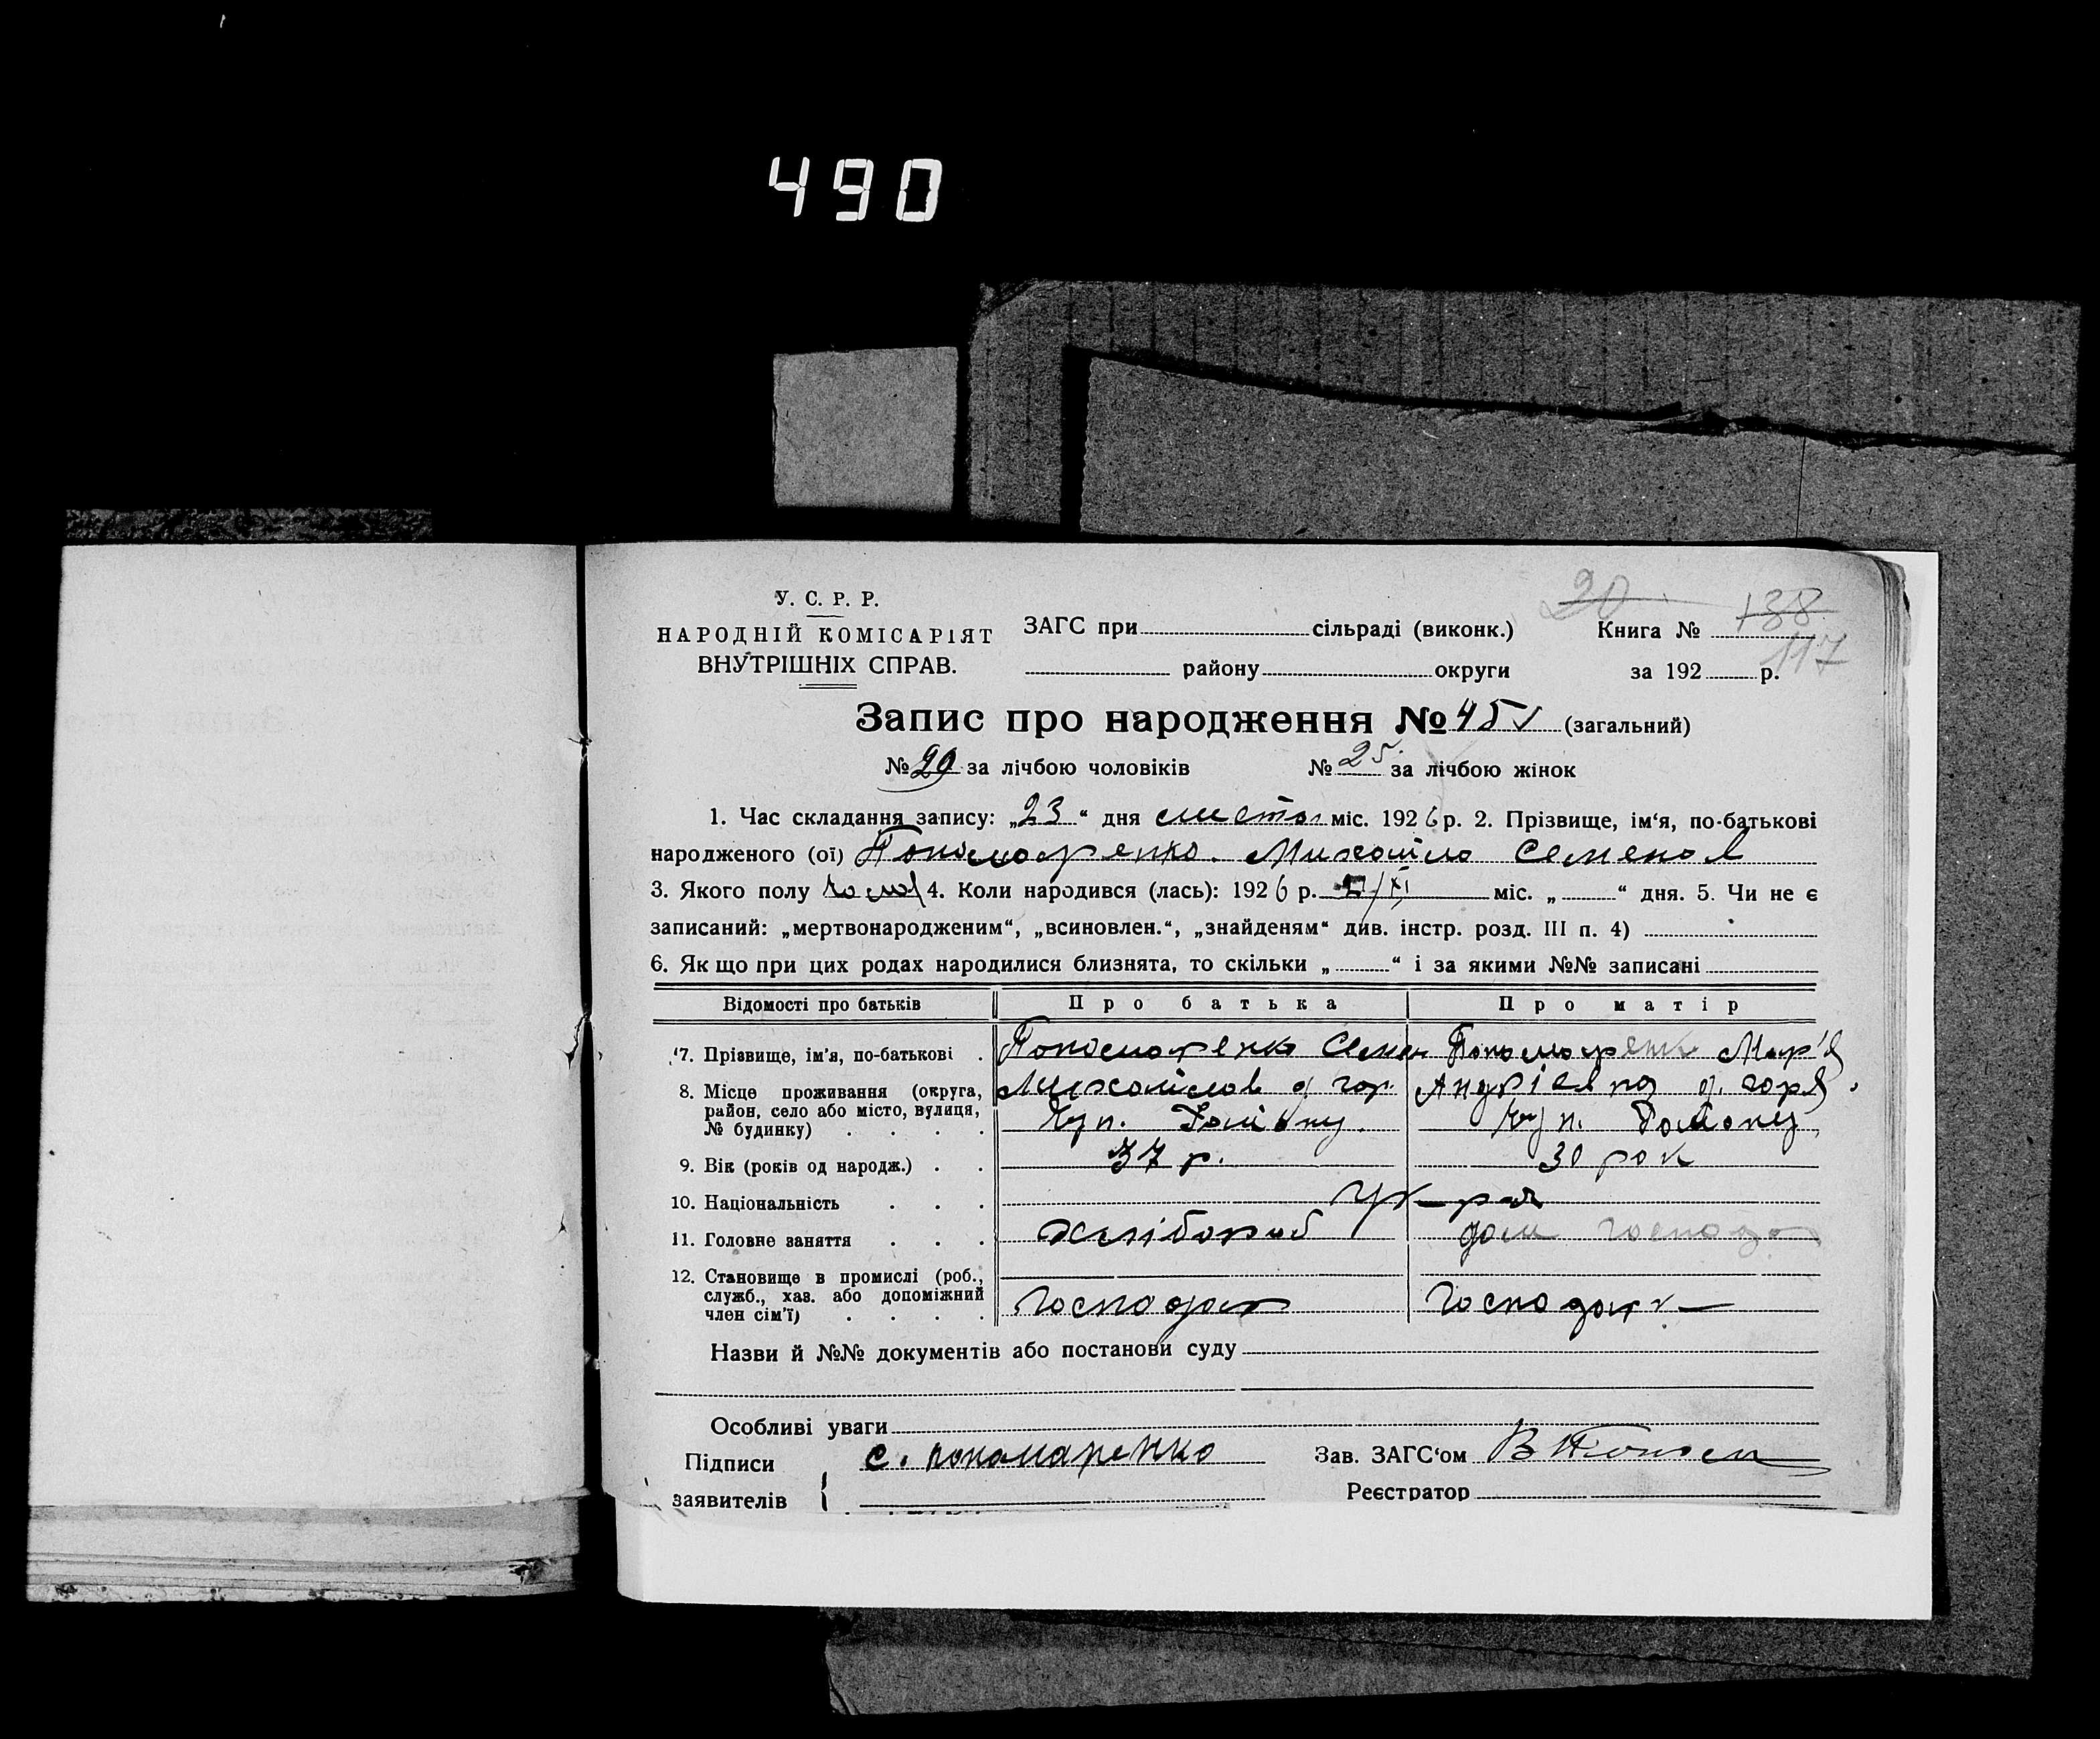 490
20
У. С. Р. Р.
НАРОДНІЙ КОМІСАРІЯТ
ВНУТРІШНІХ СПРАВ.
ЗАГС при сільраді (виконк.)
району округи
Книга № 138
117
за 192 р.
Запис про народження № 45 (загальний)
№ 20 за лічбою чоловіків № 25 за лічбою жінок
1. Час складання запису: „23“ дня листоп міс. 1926 р. 2. Прізвище, ім‘я, по-батькові
народженого (ої) Пономаренко Михайло Семенов
3. Якого полу чолов 4. Коли народився (лась): 1926 р. /XI міс. „ “ дня. 5. Чи не є
записаний: „мертвонародженим“, „всиновлен.“, „знайденям“ див. інстр. розд. III п. 4)
6. Як що при цих родах народилися близнята, то скільки „ “ і за якими №№ записані
Відомості про батьків Про батька Про матір
7. Прізвище, ім‘я, по-батькові Пономаренко Семен Пономаренк Мар'я
8. Місце проживання (округа, Михайлов Андріевна
район, село або місто, вулиця,
№ будинку)
9. Вік (років од народж.) 37 р. 30 рок
10. Національність Укр
11. Головне заняття хлібороб дом господ
12. Становище в промислі (роб.,
служб., хаз. або допоміжний
член сім‘ї) господар господар
Назви й №№ документів або постанови суду
Особливі уваги
Підписи с. пономаренко Зав. ЗАГС‘ом
заявителів Реєстратор